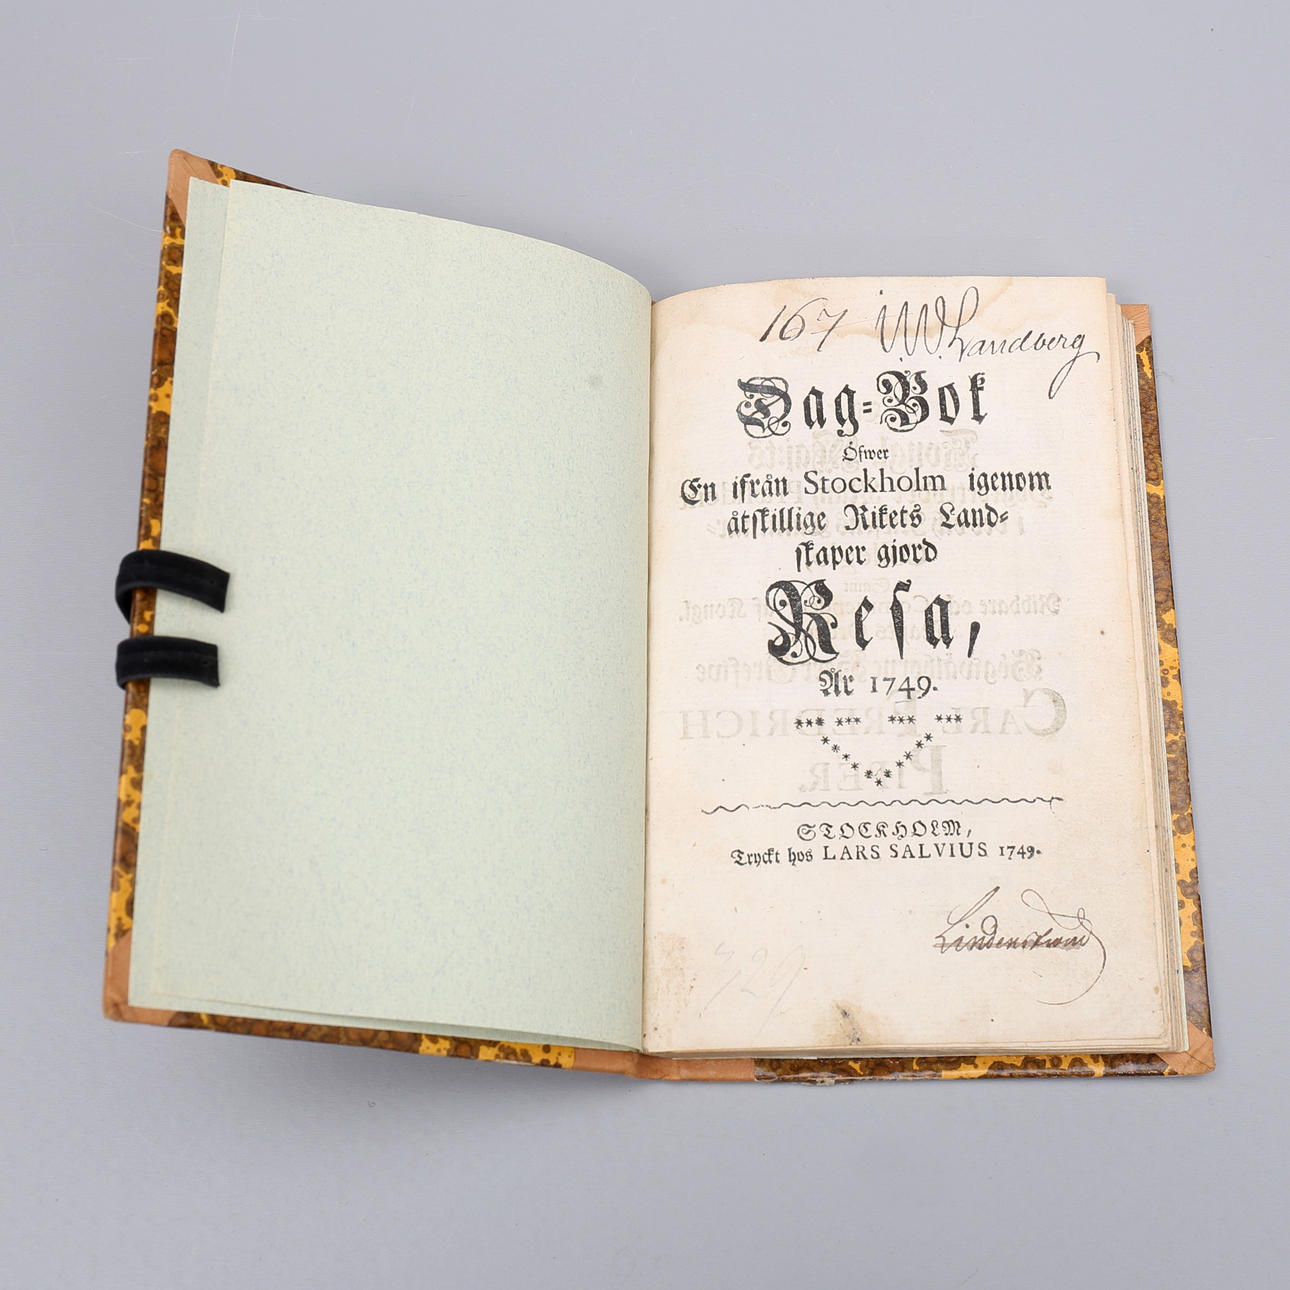 167 W Landberg
Dag-Bok
Öfwer
En ifrån Stockholm igenom
åtskillige Rikets Land-
skaper gjord
Resa,
År 1749.
*** *** *** ***
STOCKHOLM,
Tryckt hos LARS SALVIUS 1749.
729